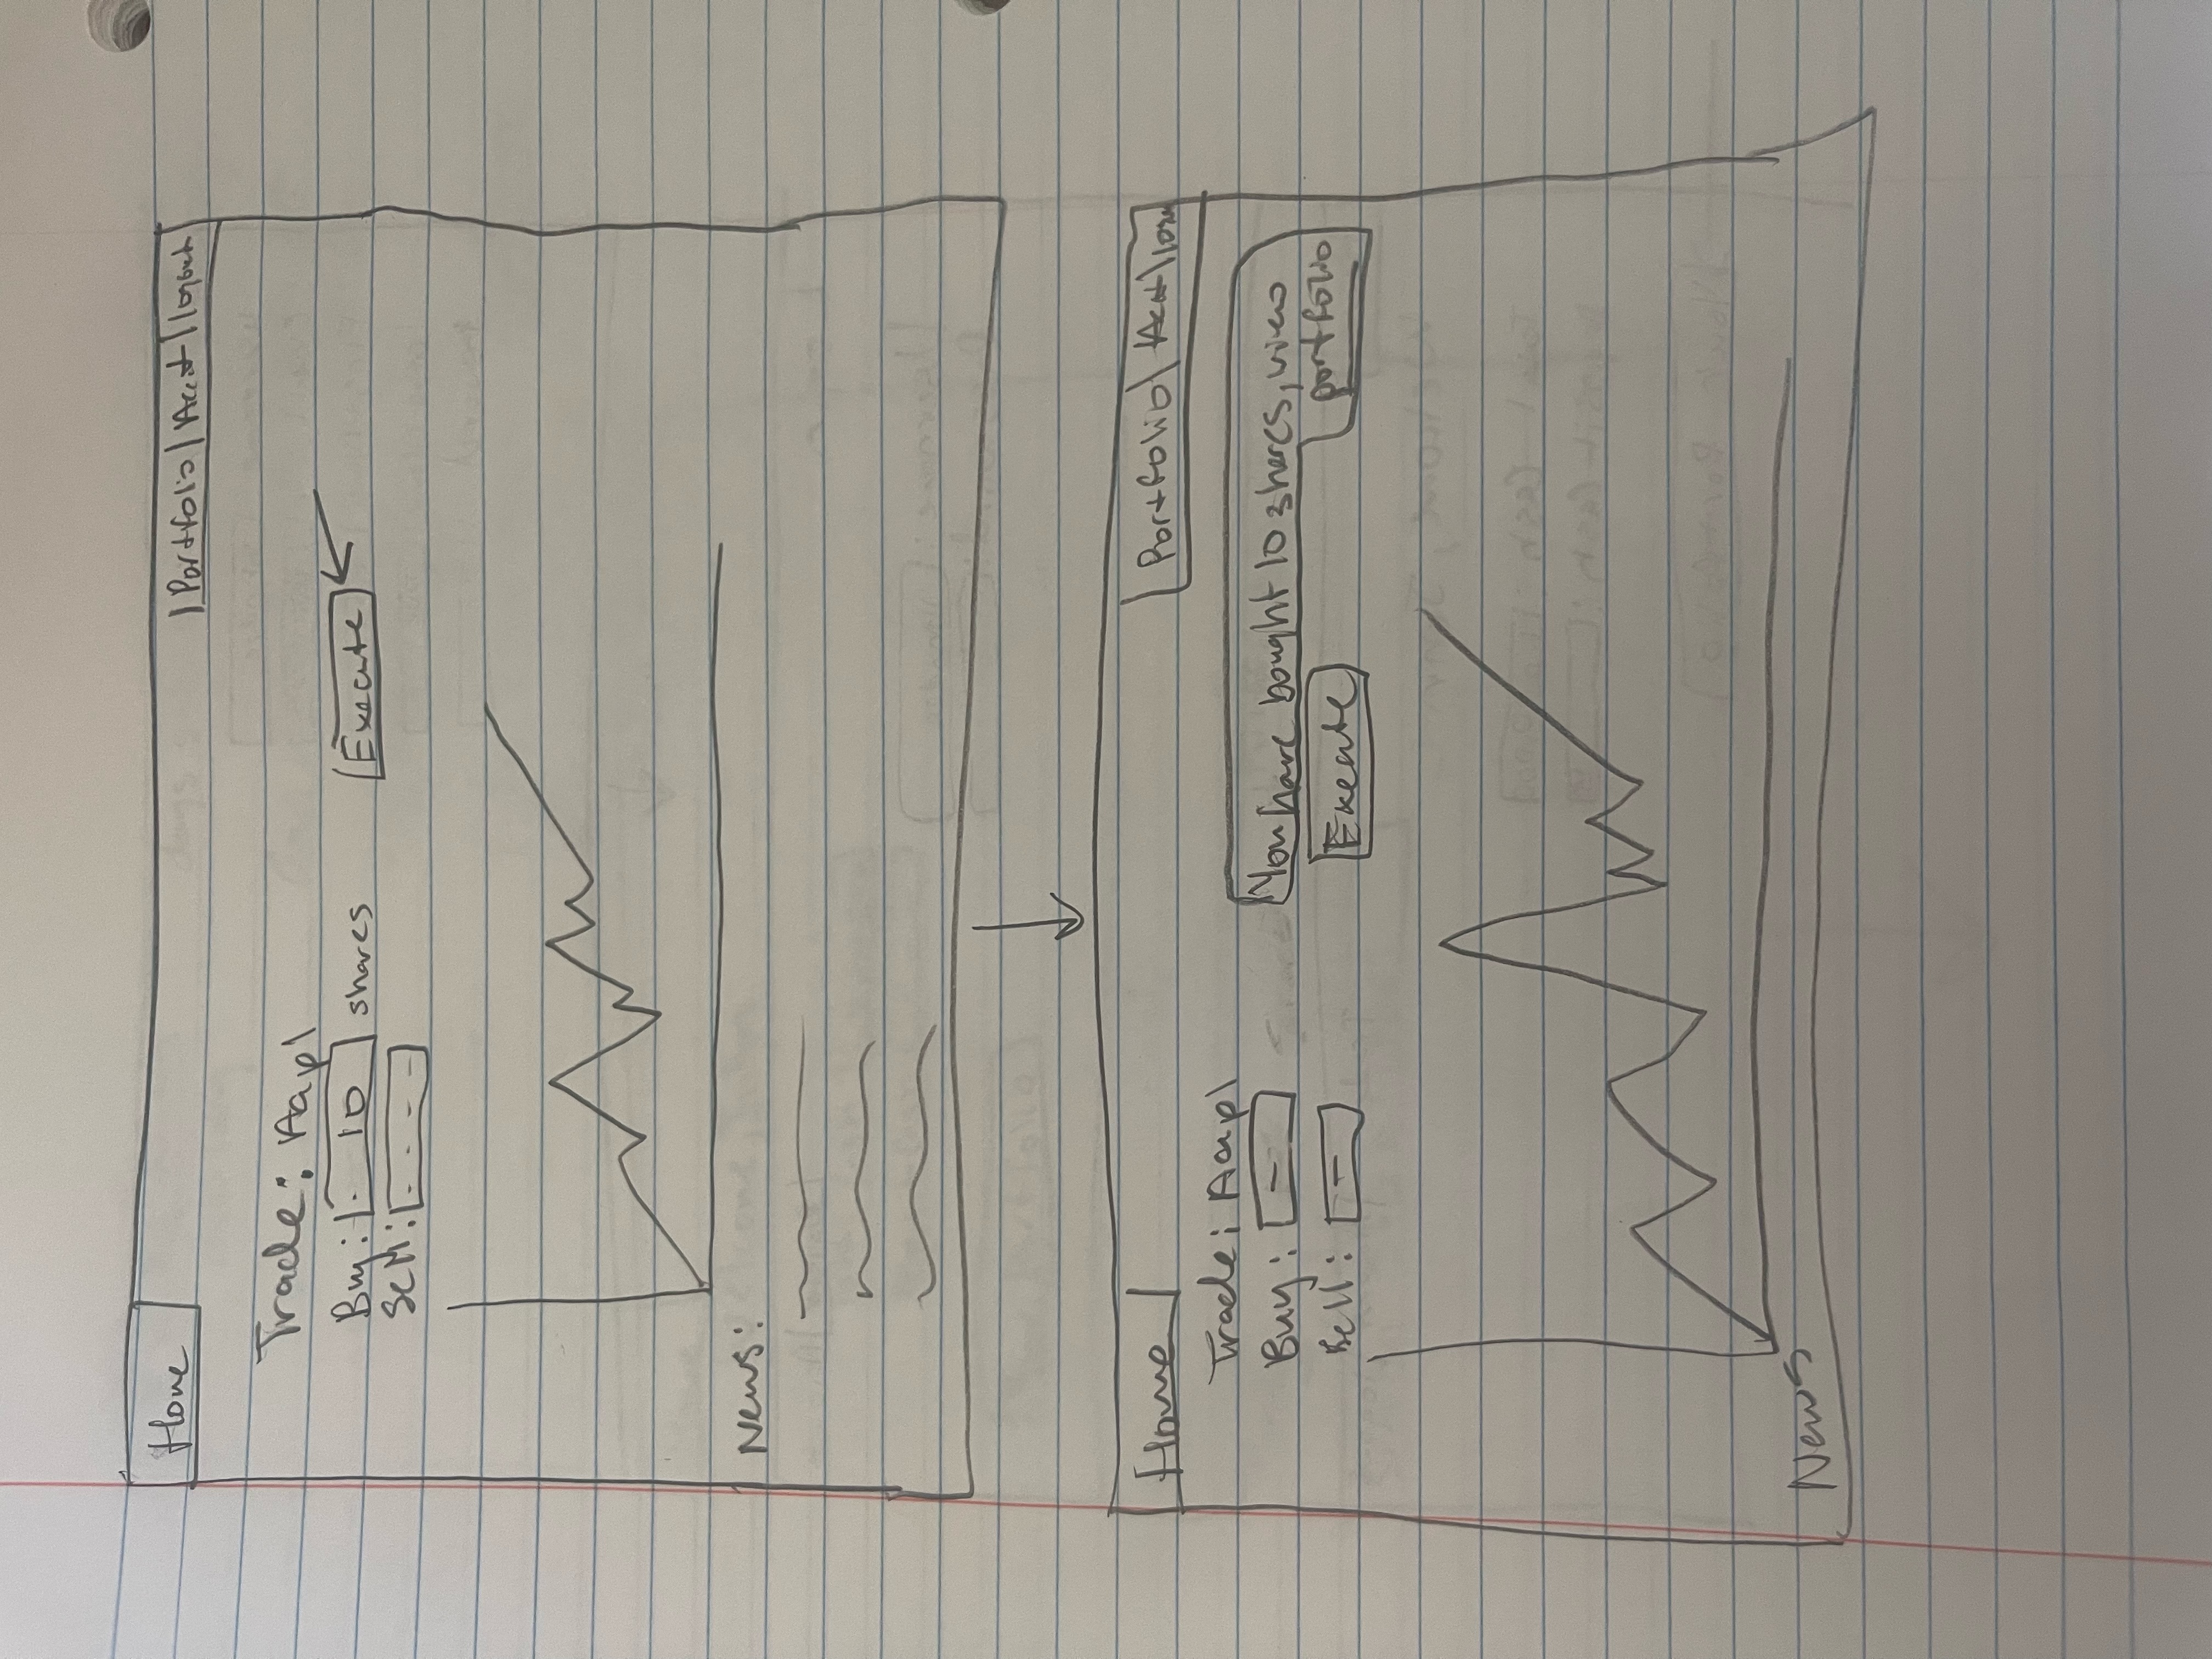 Home |Portfolio| Acct |logout
Trade: Aapl
Buy: 10 shares Execute
Sell: - - - -
News:
Home Portfolio| Acct |
Trade: Aapl
Buy: - You have bought 10 shares, view
portfolio
Sell: - Execute
News